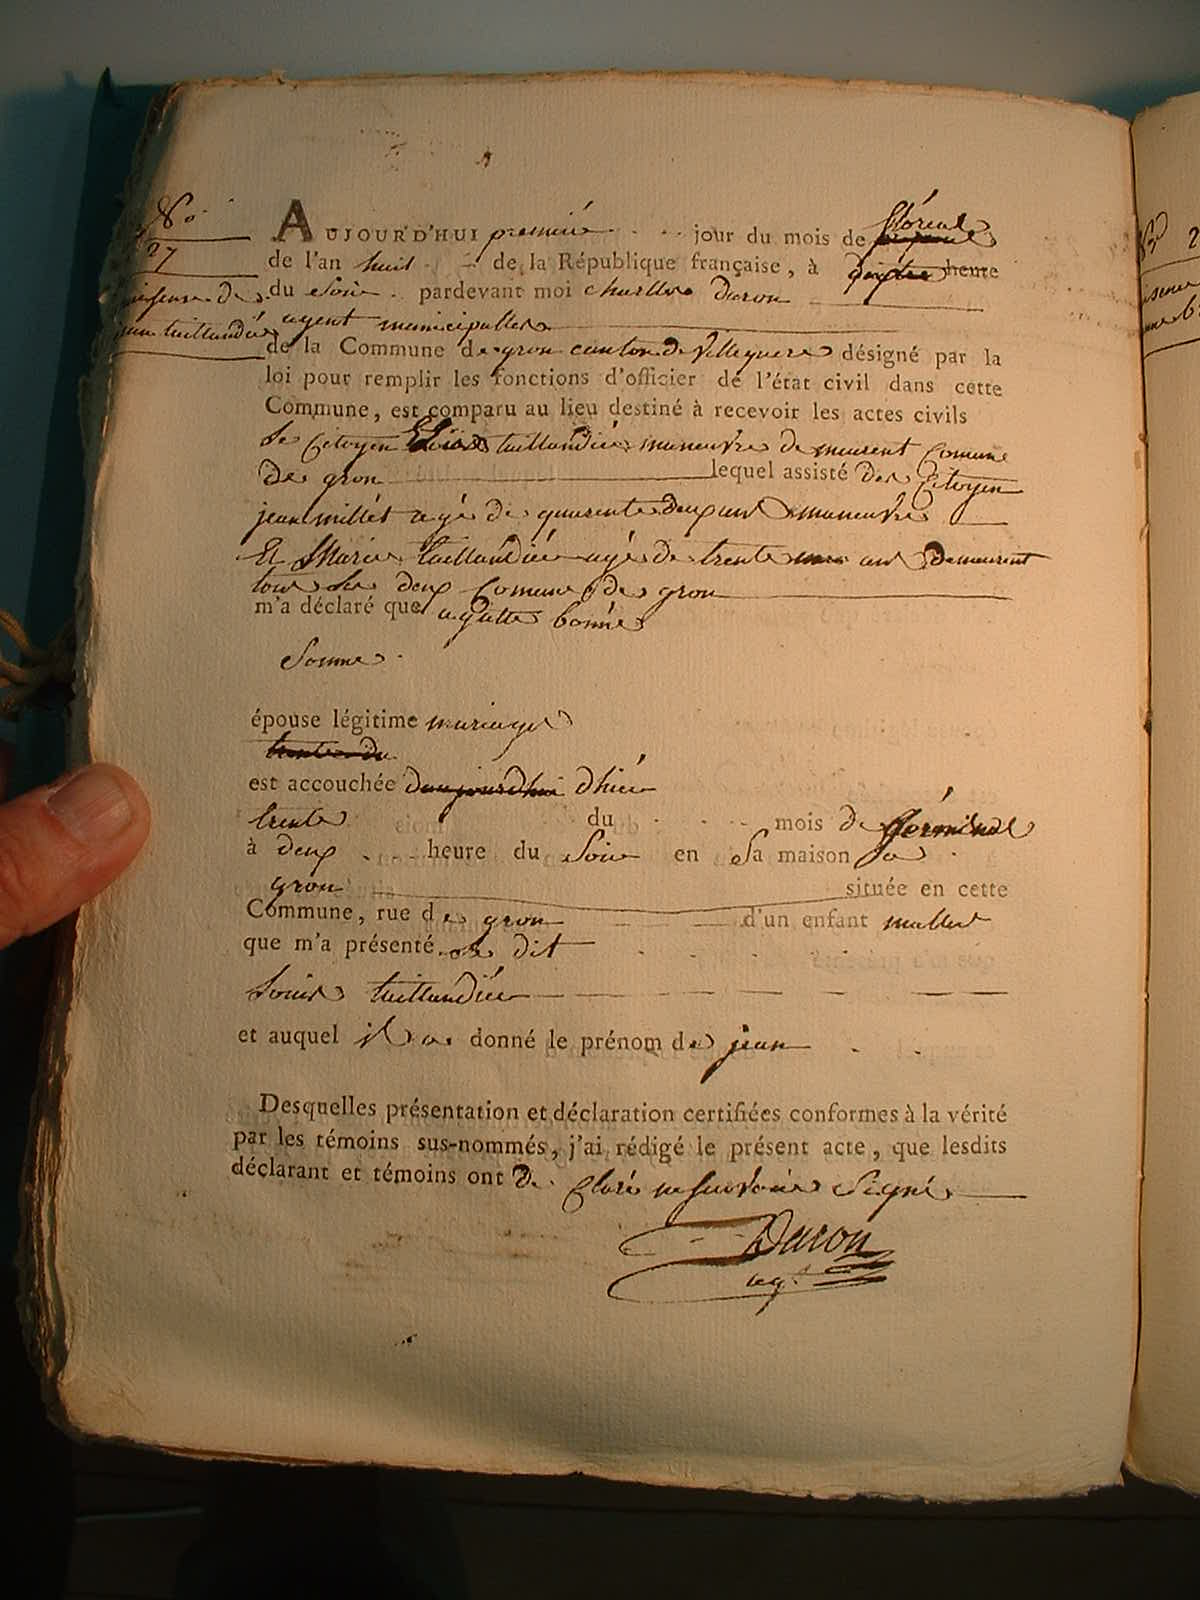 No.
27
AUJOURD'HUI premiié jour du mois de floréal
de l'an huit de la République française, à heure
du Soir pardevant moi charlles Daron
agent municipalle
de la Commune de gron canton de Villequiere désigné par la
loi pour remplir les fonctions d'officier de l'état civil dans cette
Commune, est comparu au lieu destiné à recevoir les actes civils
le Citoyen taillandié maneuvre demeurent Comune
De gron lequel assisté des Citoyen
jean millet agé de quarente deux ans maneuvre
Et Marie taillandiée agé de trente ans Demeurent
tous les deux Comune de gron
m'a déclaré que agatte bonne
Somme
épouse légitime mariage
trente du
est accouchée daujourdhui dhiér
trente du mois de Gérminal
à deux heure du Soir en Sa maison a
gron située en cette
Commune, rue de gron d'un enfant malle
que m'a présenté le dit
Louis taillandiée
et auquel il a donné le prénom de jean
Desquelles présentation et déclaration certifiées conformes à la vérité
par les témoins sus-nommés, j'ai rédigé le présent acte, que lesdits
déclarant et témoins ont De Claré ne Savoire Signé
Daron
agt